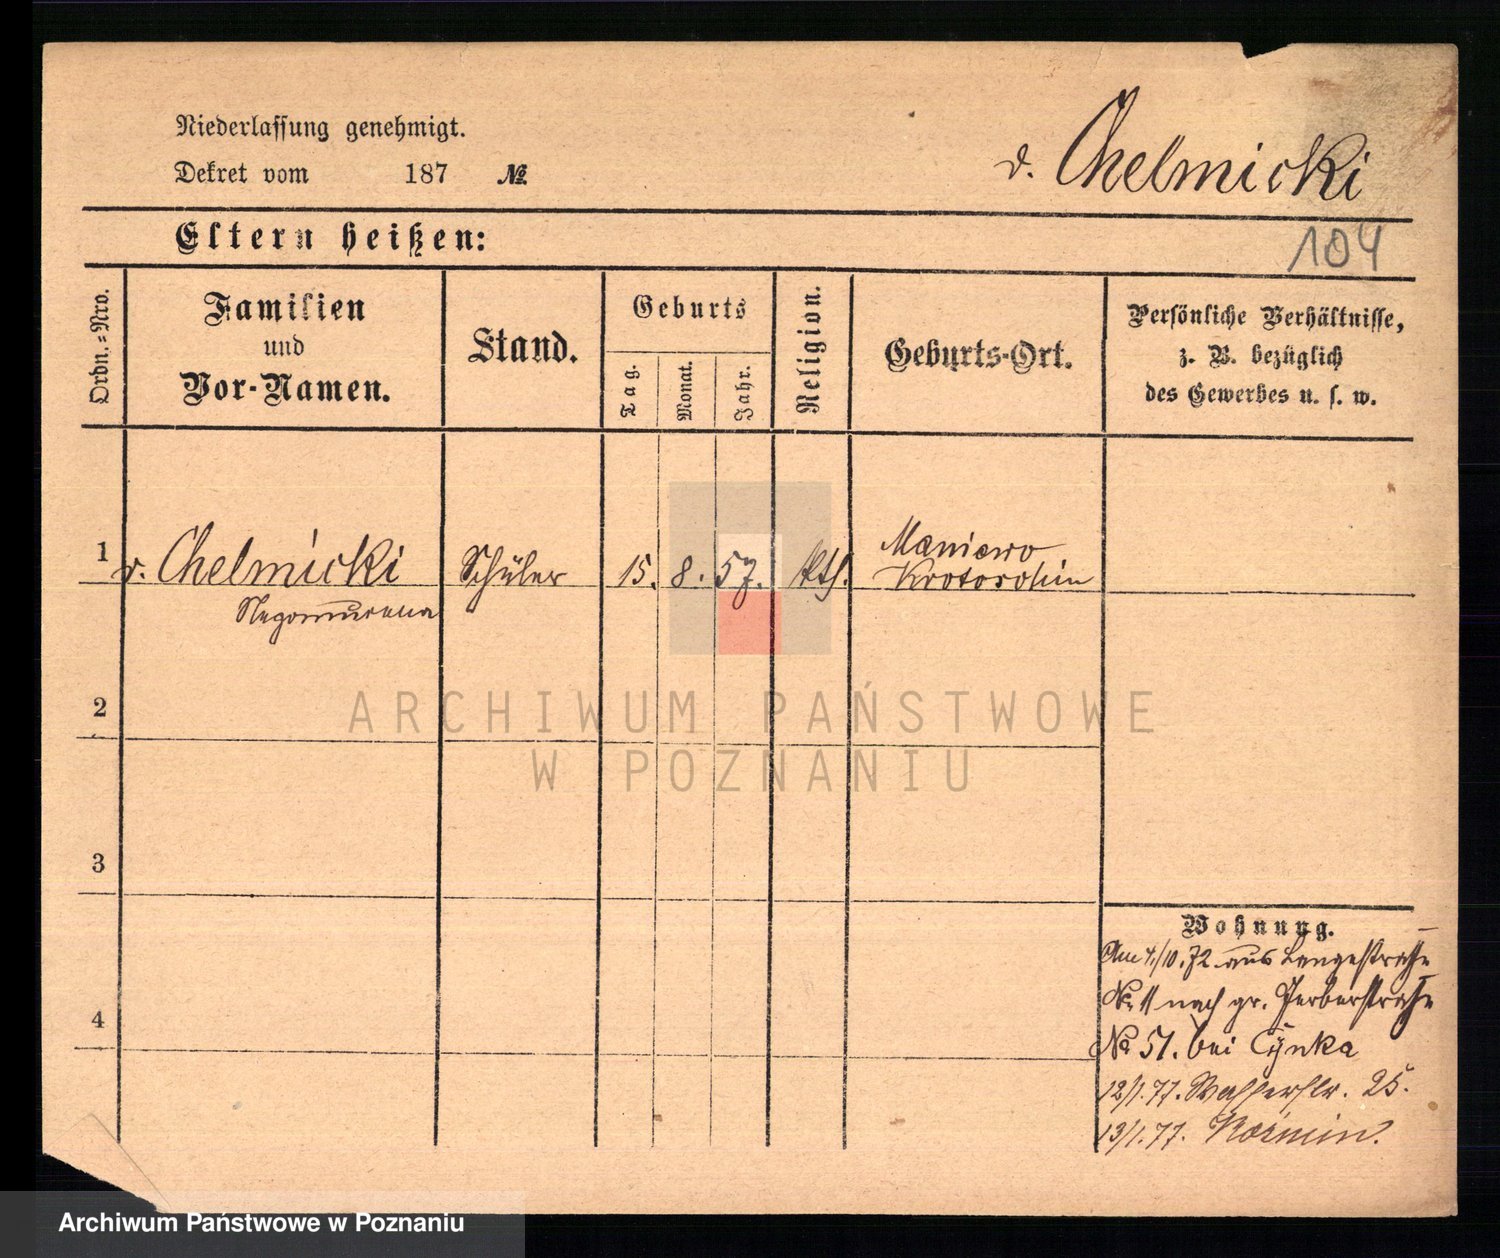 Niederlassung genehmigt.
Dekret vom 187 №
v. Chelmicki
Eltern heißen:
104
Ordn.-Nro.
Familien
und
Vor-Namen.
Stand.
Geburts
Tag.
Monat.
Jahr.
Religion.
Geburts-Ort.
Persönliche Verhältnisse,
z. B. bezüglich
des Gewerbes u. s. w.
1
v. Chelmicki
Schüler
15. 8. 57.
kth.
Maniewo
Krotoschin
2
3
4
Wohnung.
Am 4./10.72 aus Langestraße
№ 11 nach gr. Gerberstraße
№ 51. bei Cynka
12/1.77. Wasserstr. 25.
13/1.77.
ARCHIWUM PAŃSTWOWE
W POZNANIU
Archiwum Państwowe w Poznaniu